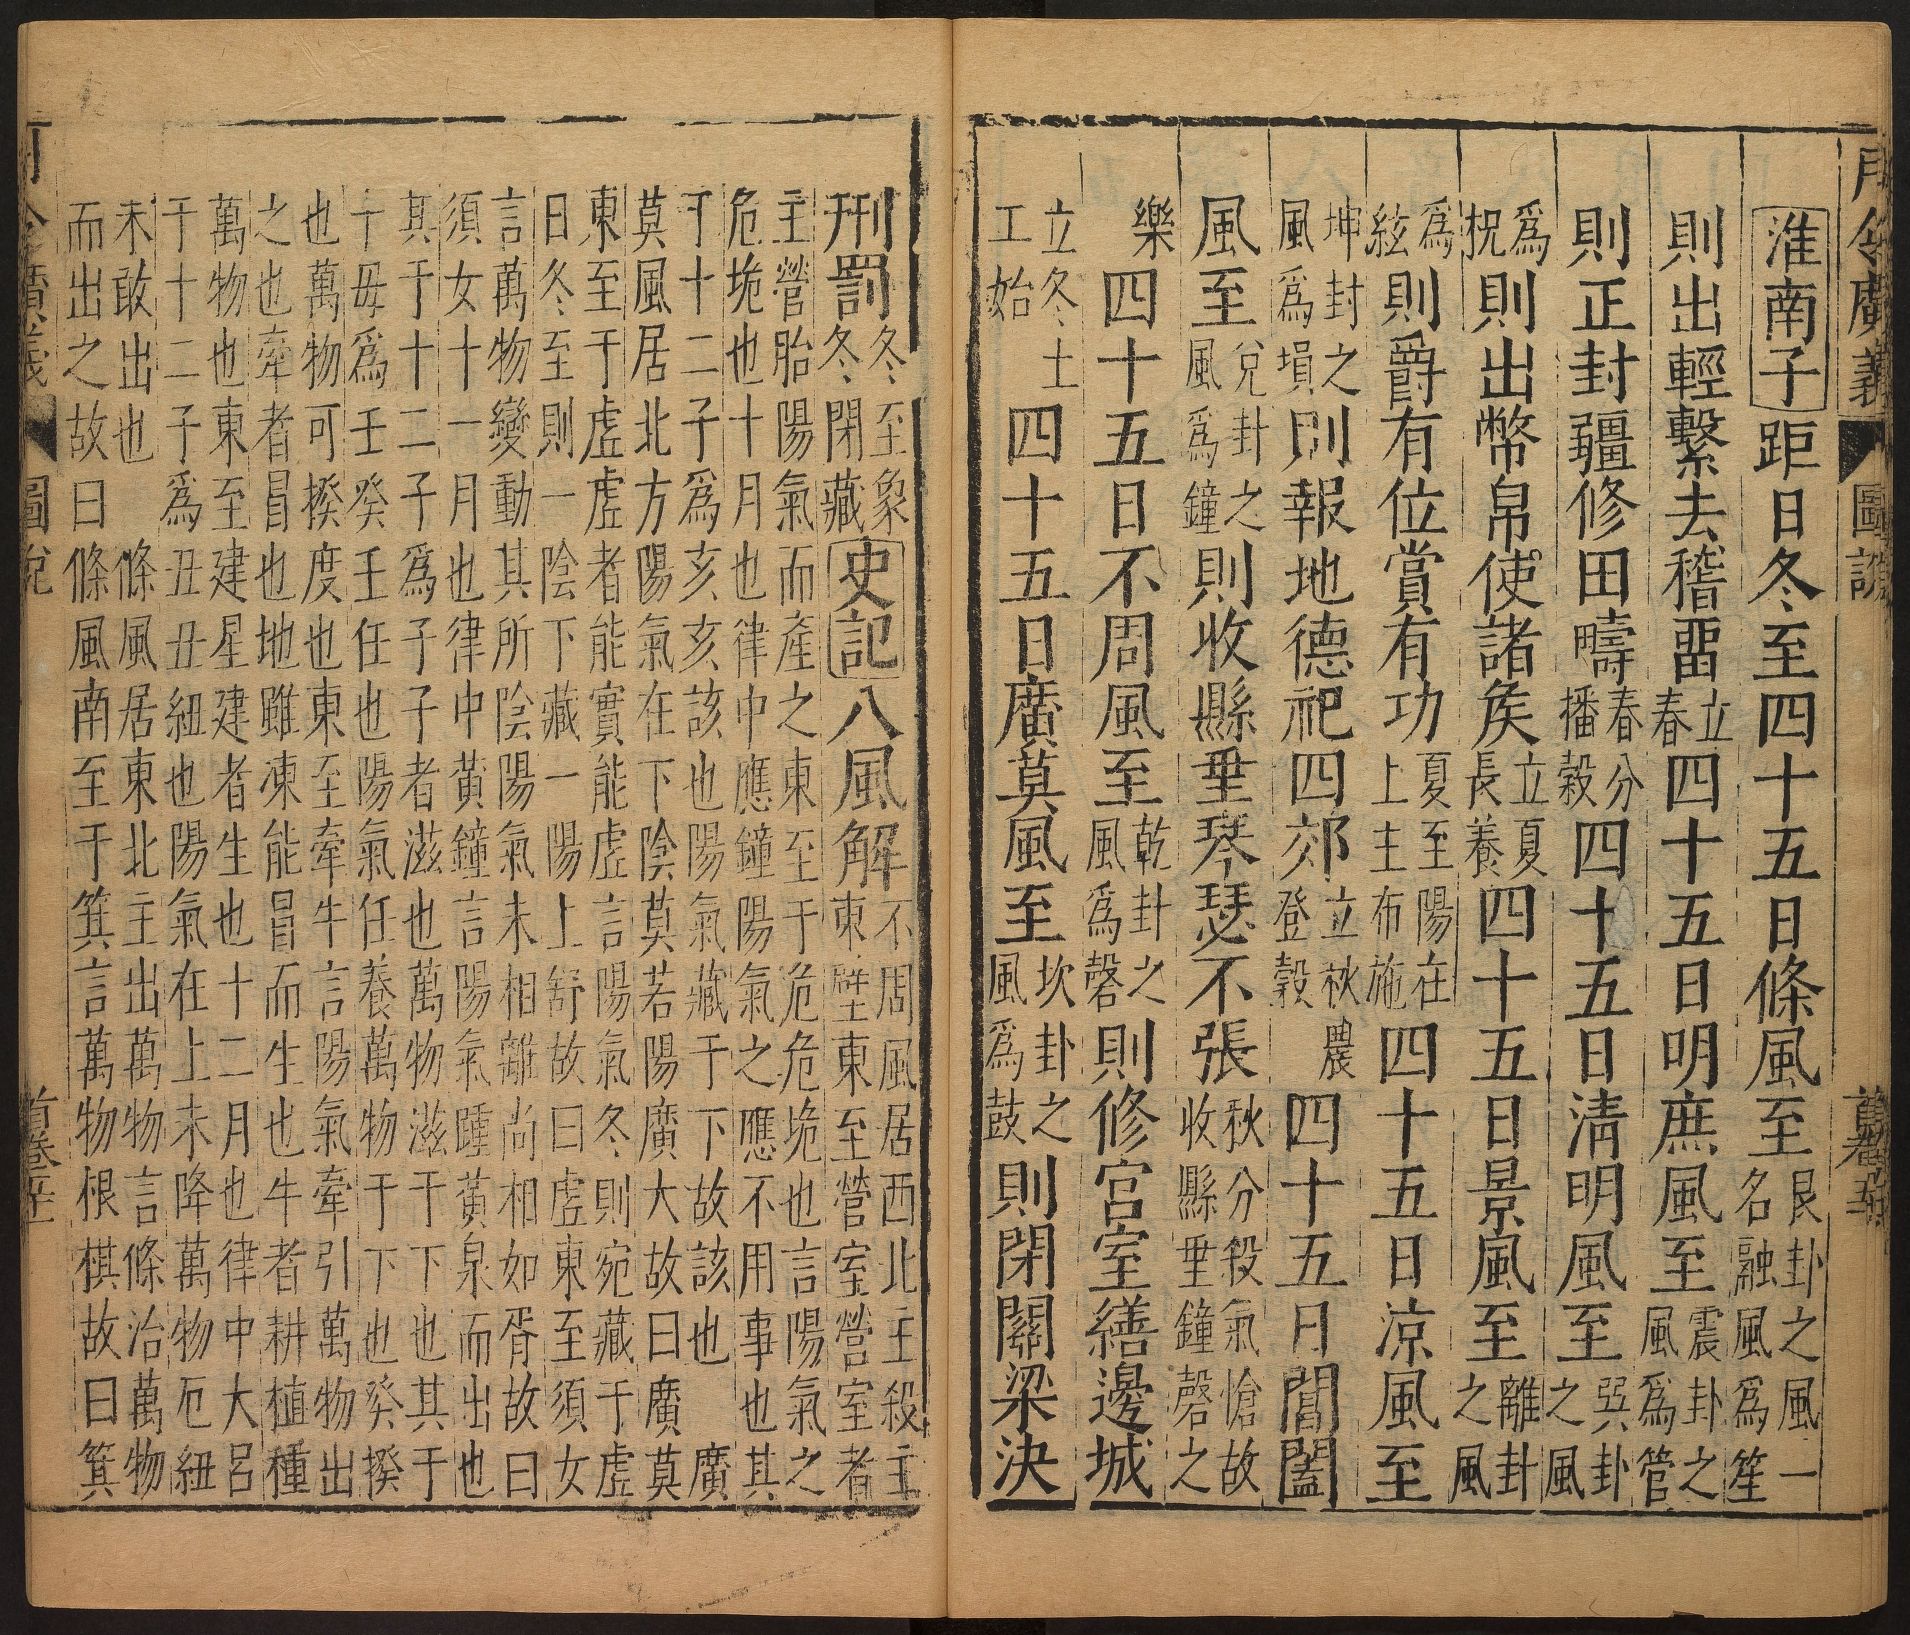 月令廣義 圖說
淮南子距日冬至四十五日條風至艮卦之風一名融風爲笙
則出輕繫去稽畱立春四十五日明庶風至震卦之風爲管
則正封疆修田疇春分播穀四十五日清明風至巽卦之風
爲柷則出幣帛使諸矦立夏長養四十五日景風至離卦之風
爲絃則爵有位賞有功夏至陽在上主布施四十五日涼風至
坤封之風爲塤則報地德祀四郊立秋農登穀四十五日閶闔
風至兌卦之風爲鐘則收縣垂琴瑟不張秋分殺氣愴故收縣垂鐘磬之
樂四十五日不周風至乾卦之風爲磬則修宮室繕邊城
立冬土工始四十五日廣莫風至坎卦之風爲鼓則閉關梁決
刑罰冬至象冬閉藏史記八風解不周風居西北主殺主東壁東至營室營室者
主營胎陽氣而產之東至于危危垝也言陽氣之
危垝也十月也律中應鐘陽氣之應不用事也其
于十二子爲亥亥該也陽氣藏于下故該也 廣
莫風居北方陽氣在下陰莫若陽廣大故曰廣莫
東至于虛虛者能實能虛言陽氣冬則宛藏于虛
日冬至則一陰下藏一陽上舒故曰虛東至須女
言萬物變動其所陰陽氣未相離尚相如胥故曰
須女十一月也律中黃鐘言陽氣踵黃泉而出也
其于十二子爲子子者滋也萬物滋于下也其于
十毋爲壬癸壬任也陽氣任養萬物于下也癸揆
也萬物可揆度也東至牽牛言陽氣牽引萬物出
之也牽者冒也地雖凍能冒而生也牛者耕植種
萬物也東至建星建者生也十二月也律中大呂
于十二子爲丑丑紐也陽氣在上未降萬物厄紐
未敢出也 條風居東北主出萬物言條治萬物
而出之故曰條風南至于箕言萬物根棋故曰箕
月令廣義 圖說